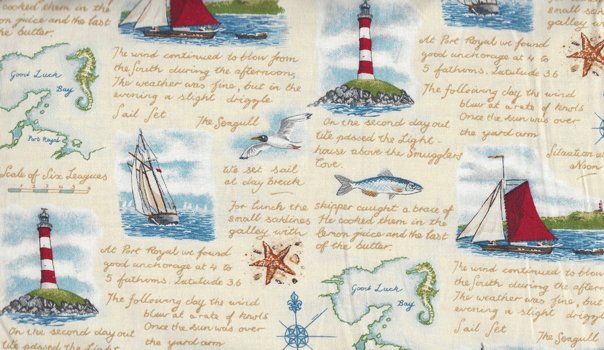 ocked them in the
on juice and the last
the butter.
Good Luck
Bay
Port Royal
Scale of Six Leagues
The wind continued to blow from
the South during the afternoon,
The weather was fine, but in the
evening a slight driggle
Sail Set
The Seagull
We set sail
at day breuk
For lunch the skipper caught a brace of
small sardines He cooked them in the
galley with lemon juice and the last
of the butter.
At Port Royal we found
good anchorage at 4 to
5 fathoms. Latulude 3.6
The following day the wind
blew at a rate of knots
Once the sun was over
the yard arm
On the second day out
tile passed the Light
On the second day out
tile passed the Light-
house above the Smugglers
Cove
small s
galley w
At Port Royal we found
good anchorage at 4 to
5 fathoms. Latulude 3.6
The following day, the wind
blew at a rate of knots
Once the sun was over
the yard arm
Situation at
Noon
Good Luck
Bay
The wind continued to blow
the South during the after
The weather was fine, but
evening a slight driggle
Sail Set
The Sea